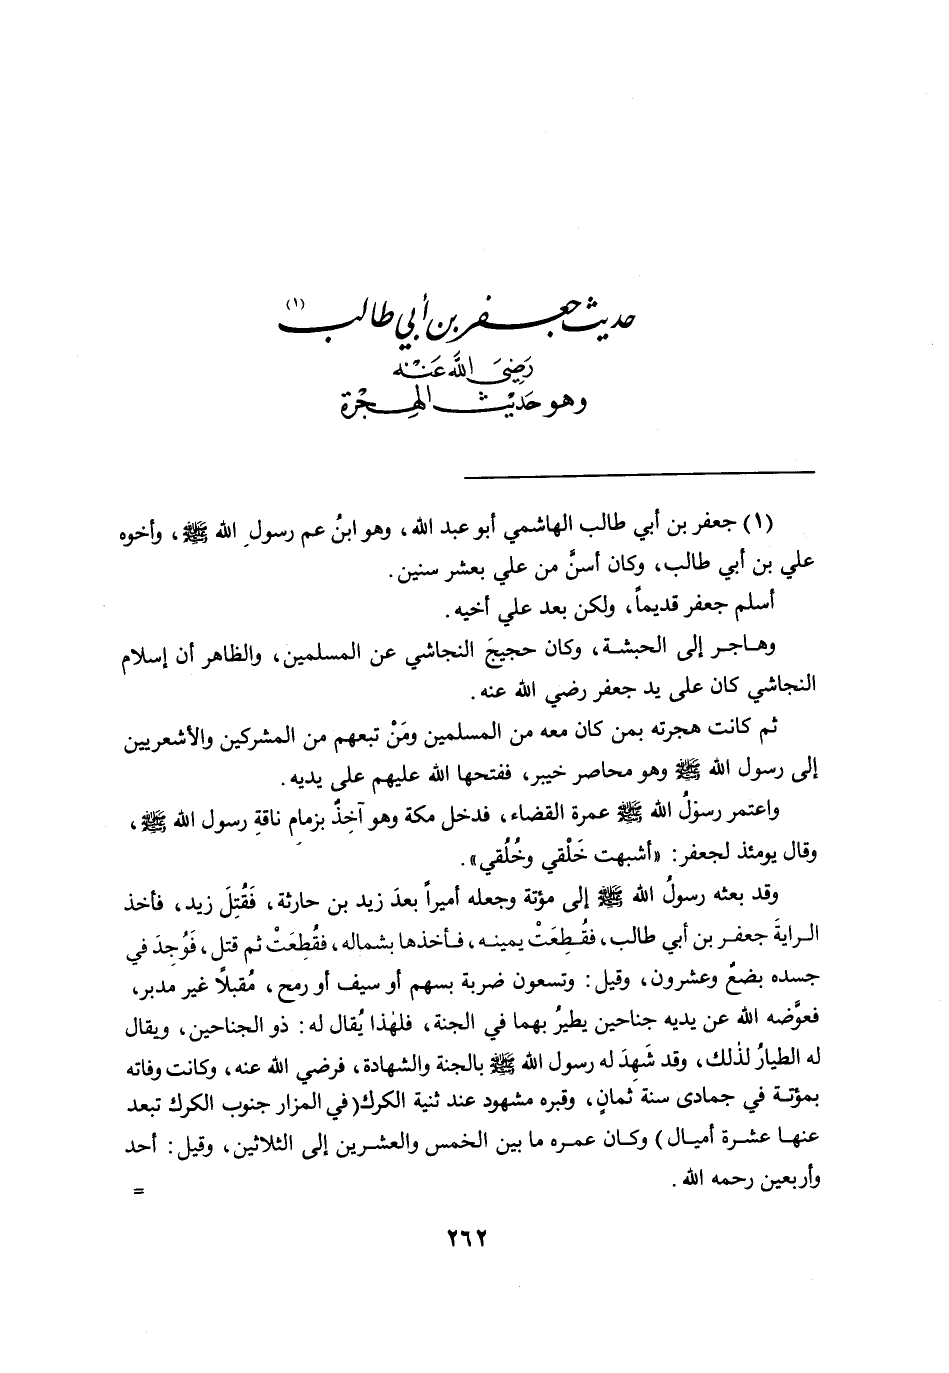 حديث جعفر بن أبي طالب (١)
رَضِيَ اللَّه عَنْه
وهو حَديث الهِجْرة
(١) جعفر بن أبي طالب الهاشمي أبو عبد الله، وهو ابنُ عم رسول الله ﷺ، وأخوه
علي بن أبي طالب، وكان أسنَّ من علي بعشر سنين.
أسلم جعفر قديماً، ولكن بعد علي أخيه.
وهاجر إلى الحبشة، وكان حجيجَ النجاشي عن المسلمين، والظاهر أن إسلام
النجاشي كان على يد جعفر رضي الله عنه.
ثم كانت هجرته بمن كان معه من المسلمين ومَنْ تبعهم من المشركين والأشعريين
إلى رسول الله ﷺ وهو محاصر خيبر، ففتحها الله عليهم على يديه.
واعتمر رسولُ الله ﷺ عمرة القضاء، فدخل مكة وهو آخِذٌ بزمامِ ناقةِ رسول الله ﷺ،
وقال يومئذ لجعفر: «أشبهت خَلْقي وخُلُقي».
وقد بعثه رسولُ الله ﷺ إلى مؤتة وجعله أميراً بعدَ زيد بن حارثة، فَقُتِلَ زيد، فأخذ
الرايةَ جعفر بن أبي طالب، فقُطِعَتْ يمينه، فأخذها بشماله، فقُطِعَتْ ثم قتل، فَوُجِدَ في
جسده بضعٌ وعشرون، وقيل: وتسعون ضربة بسهم أو سيف أو رمح، مُقبلاً غير مدبر،
فعوَّضه الله عن يديه جناحين يطيرُ بهما في الجنة، فلهٰذا يُقال له: ذو الجناحين، ويقال
له الطيارُ لذٰلك، وقد شَهِدَ له رسول الله ﷺ بالجنة والشهادة، فرضي الله عنه، وكانت وفاته
بمؤتة في جمادى سنة ثمانٍ، وقبره مشهود عند ثنية الكرك(في المزار جنوب الكرك تبعد
عنها عشرة أميال) وكان عمره ما بين الخمس والعشرين إلى الثلاثين، وقيل: أحد
وأربعين رحمه الله.
=
٢٦٢